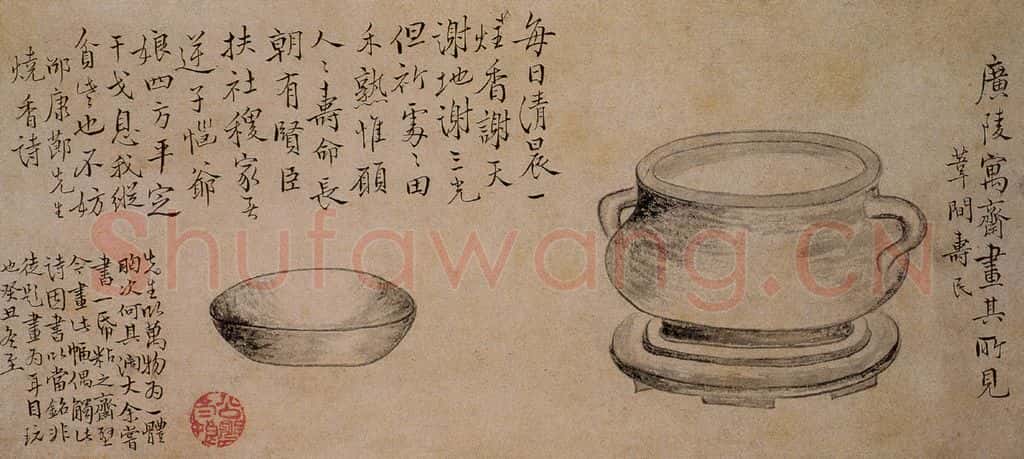 廣陵寓齋畫其所見
葦間壽民
每日清晨一
炷香謝天
謝地謝三光
但祈處〻田
禾熟惟願
人〻壽命長
朝有賢臣
扶社稷家无
逆子惱爺
娘四方平定
干戈息我縱
貧也不妨
邵康節先生
燒香詩
先生以萬物為一體
胸次何其濶大余嘗
書一帋粘之齋壁
今畫此幅偶觸此
詩因書以當銘非
徒題畫為耳目玩
也癸丑冬至
Shufawang.CN